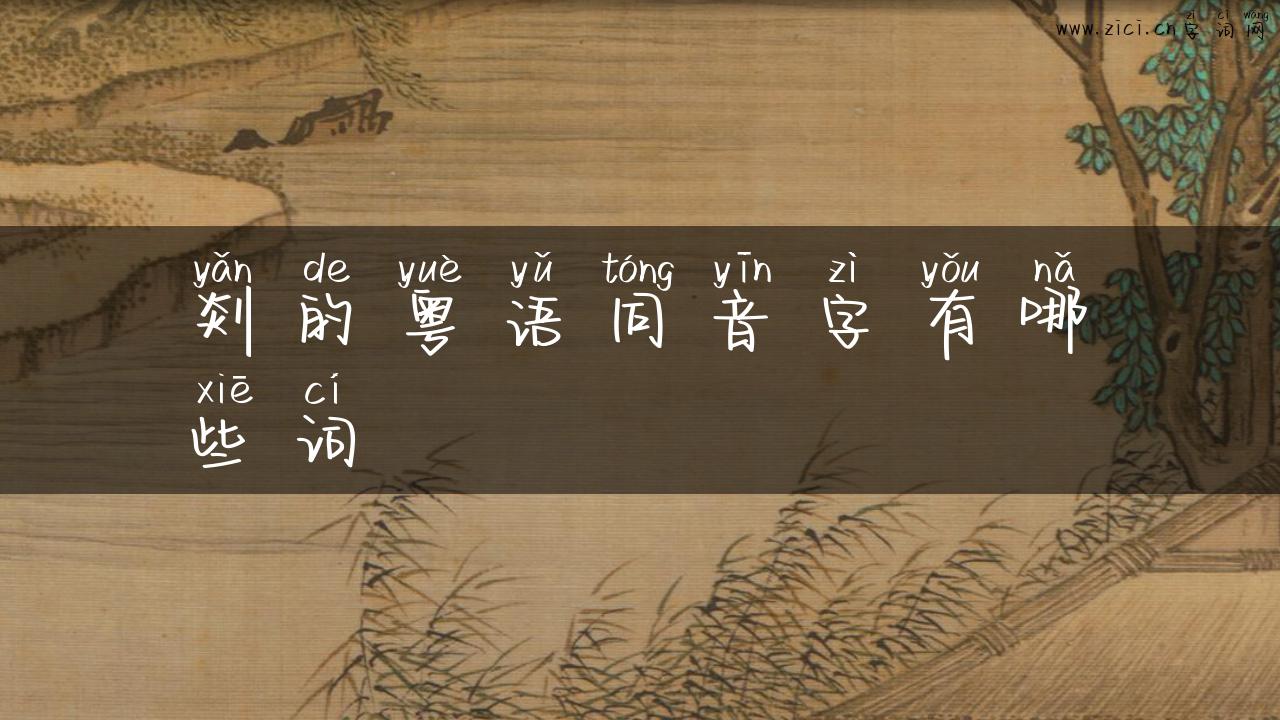 zì cí wǎng
www.zici.cn字词网
yǎn de yuè yǔ tóng yīn zì yǒu nǎ
剡的粤语同音字有哪
xiē cí
些词